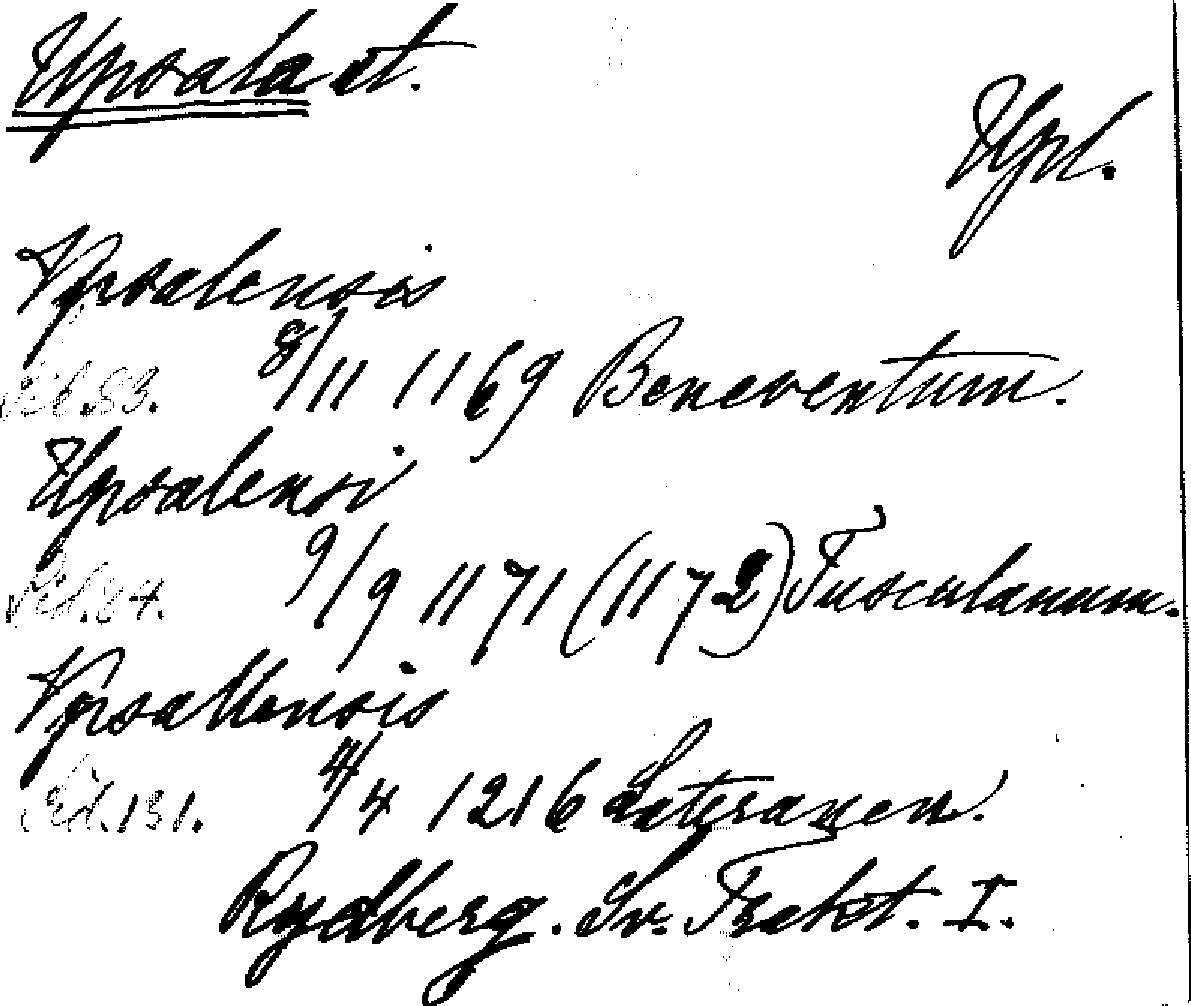 Upsala st.
Upl.
Vpsalensis
Sid. 83. 8/11 1169 Beneventum.
Upsalensi
Sid. 84. 9/9 1171 (1172) Tusculanum.
Vpsallensis
Sid. 131. 4/4 1216 Lateranen.
Rydberg. Sv. Trakt. I.